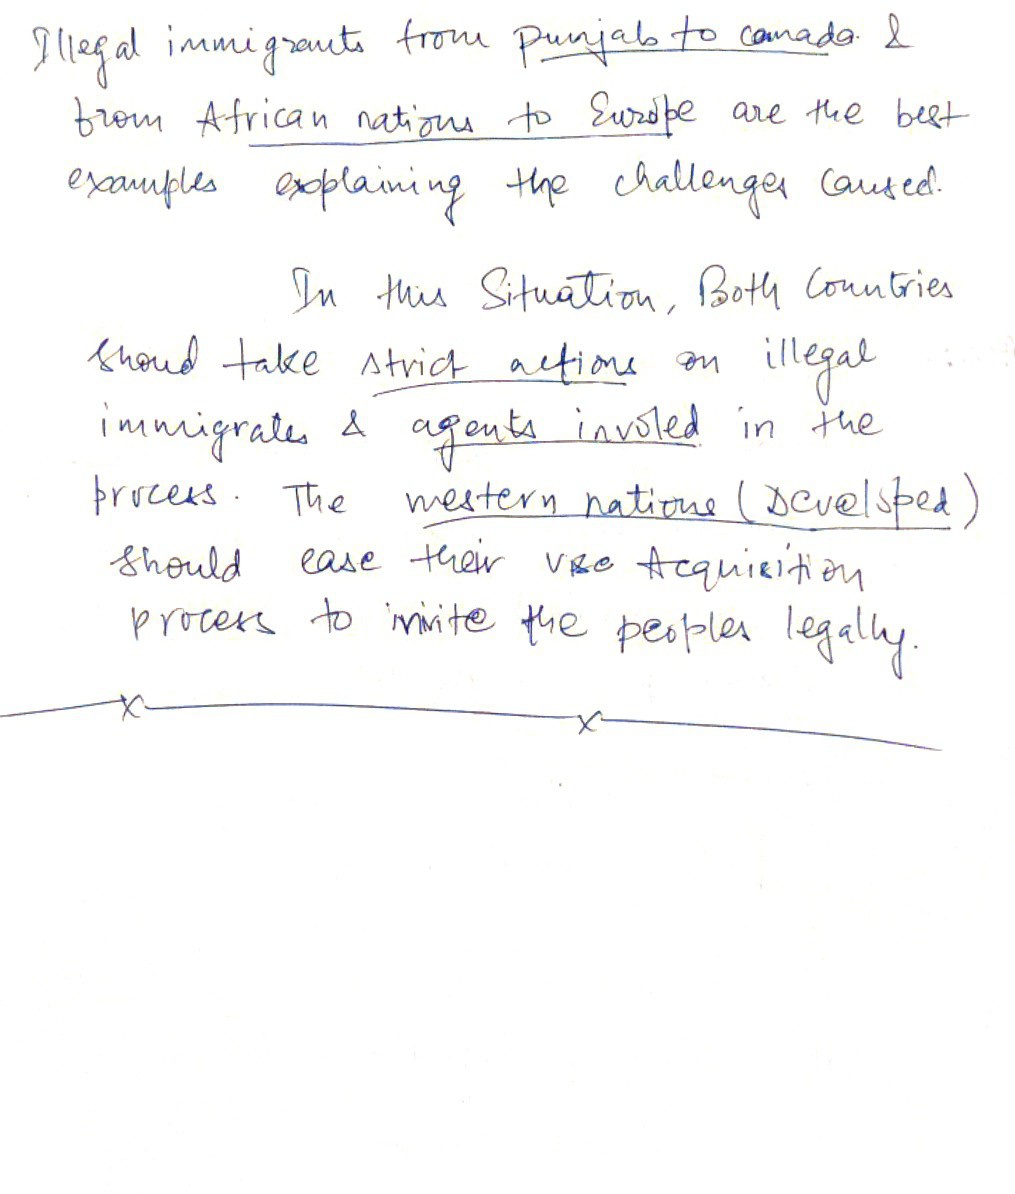 Illegal immigrants from Punjab to Canada &
from African nations to Europe are the best
examples explaining the challenges caused.
In this Situation, Both Countries
shoud take strict actions on illegal
immigrates & agents involed in the
process. The western nations (Developed)
should ease their Acquisition
process to invite the peoples legally.